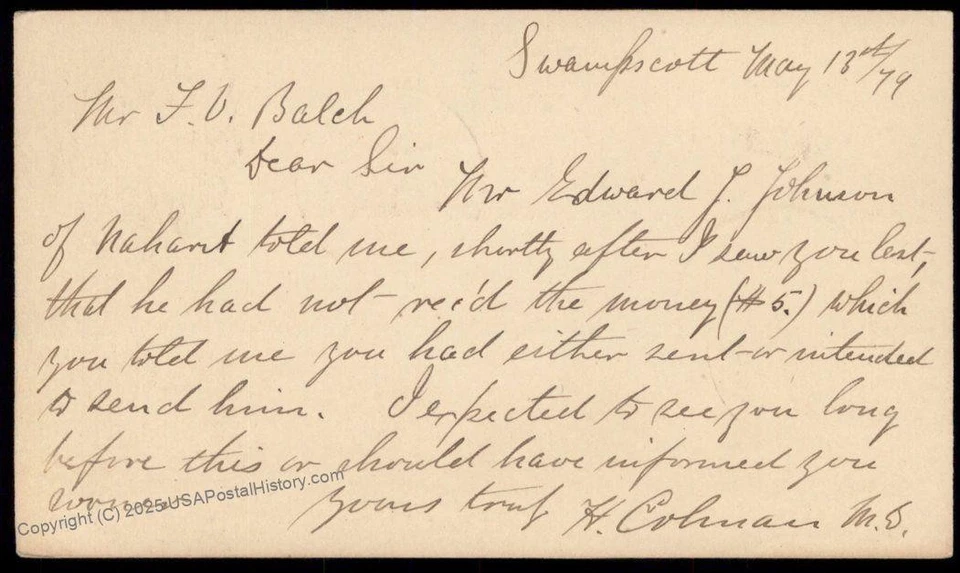 Swampscott May 13th/79
Mr F. V. Balch
Dear Sir
Mr Edward J. Johnson
of Nahant told me, shortly after I saw you last,
that he had not rec'd the money ($5.) which
you told me you had either sent or intended
to send him. I expected to see you long
before this or should have informed you
yours truly H. Colman M.D.
Copyright (C) 2025 USAPostalHistory.com